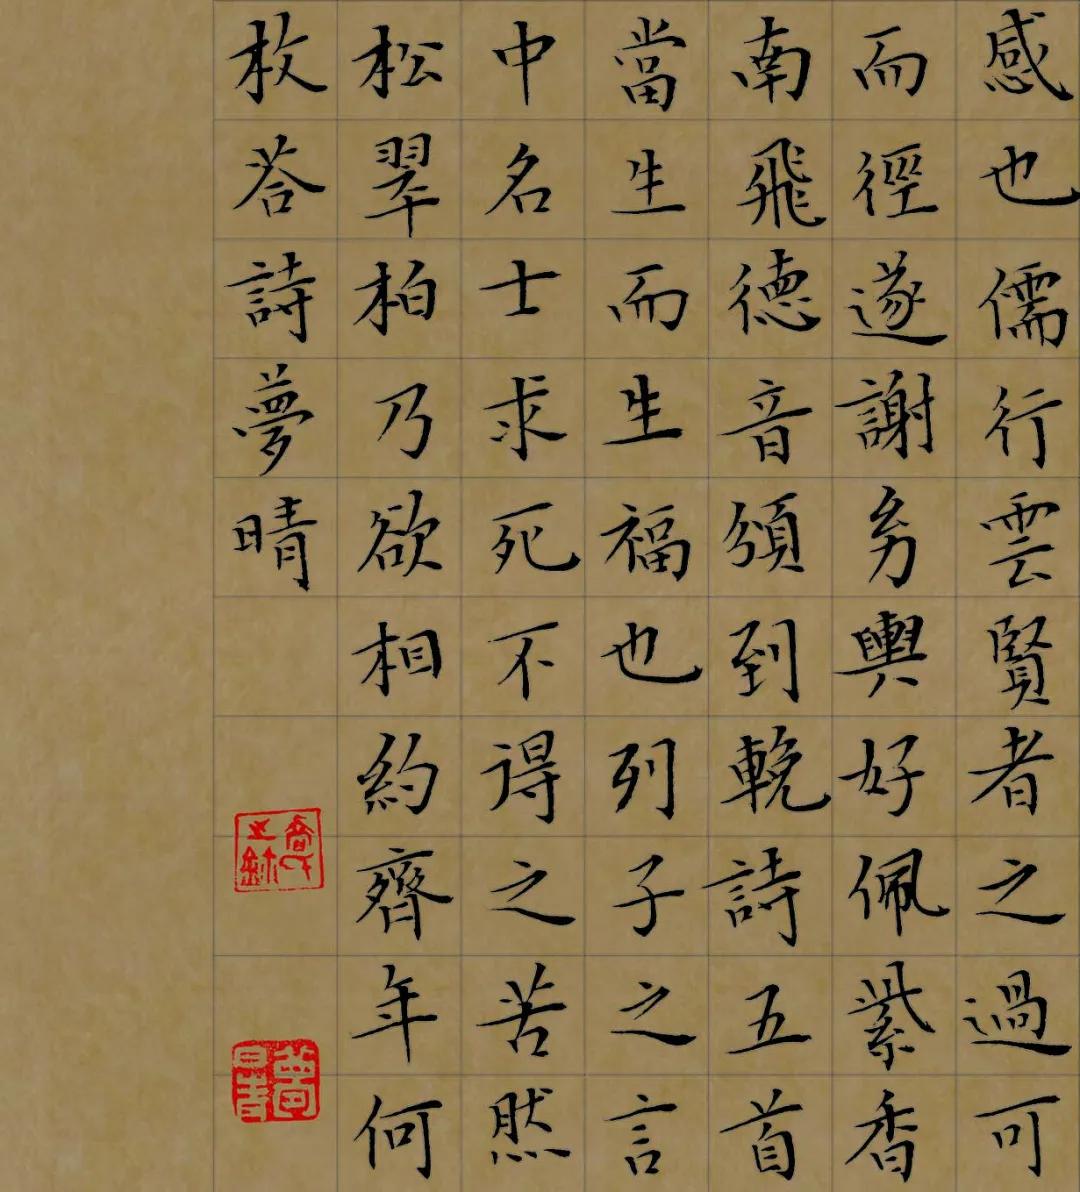 感也儒行雲賢者之過可
而徑遂謝豸輿好佩紫香
南飛德音頒到輓詩五首
當生而生福也列子之言
中名士求死不得之苦然
松翠柏乃欲相約齊年何
枚荅詩夢晴